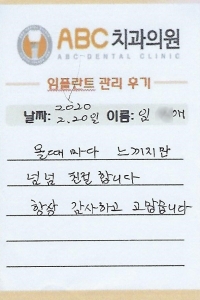 ABC치과의원
ABC-DENTAL CLINIC
임플란트 관리 후기
2020
날짜: 2.20일 이름: 임 애
올때 마다 느끼지만
넘넘 친절 합니다
항상 감사하고 고맙습니다